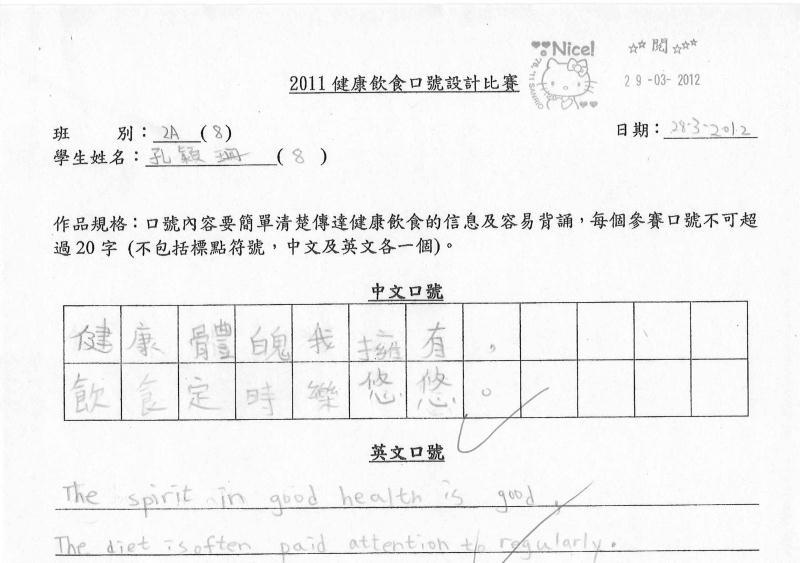 Nice!
☆☆ 閱 ☆☆☆
29-03-2012
2011 健康飲食口號設計比賽
班 別：2A (8)
日期：28-3-2012
學生姓名：孔穎珊 (8)
作品規格：口號內容要簡單清楚傳達健康飲食的信息及容易背誦，每個參賽口號不可超
過 20 字 (不包括標點符號，中文及英文各一個)。
中文口號
健康體魄我擁有，
飲食定時樂悠悠。
英文口號
The spirit in good health is good,
The diet is often paid attention to regularly.